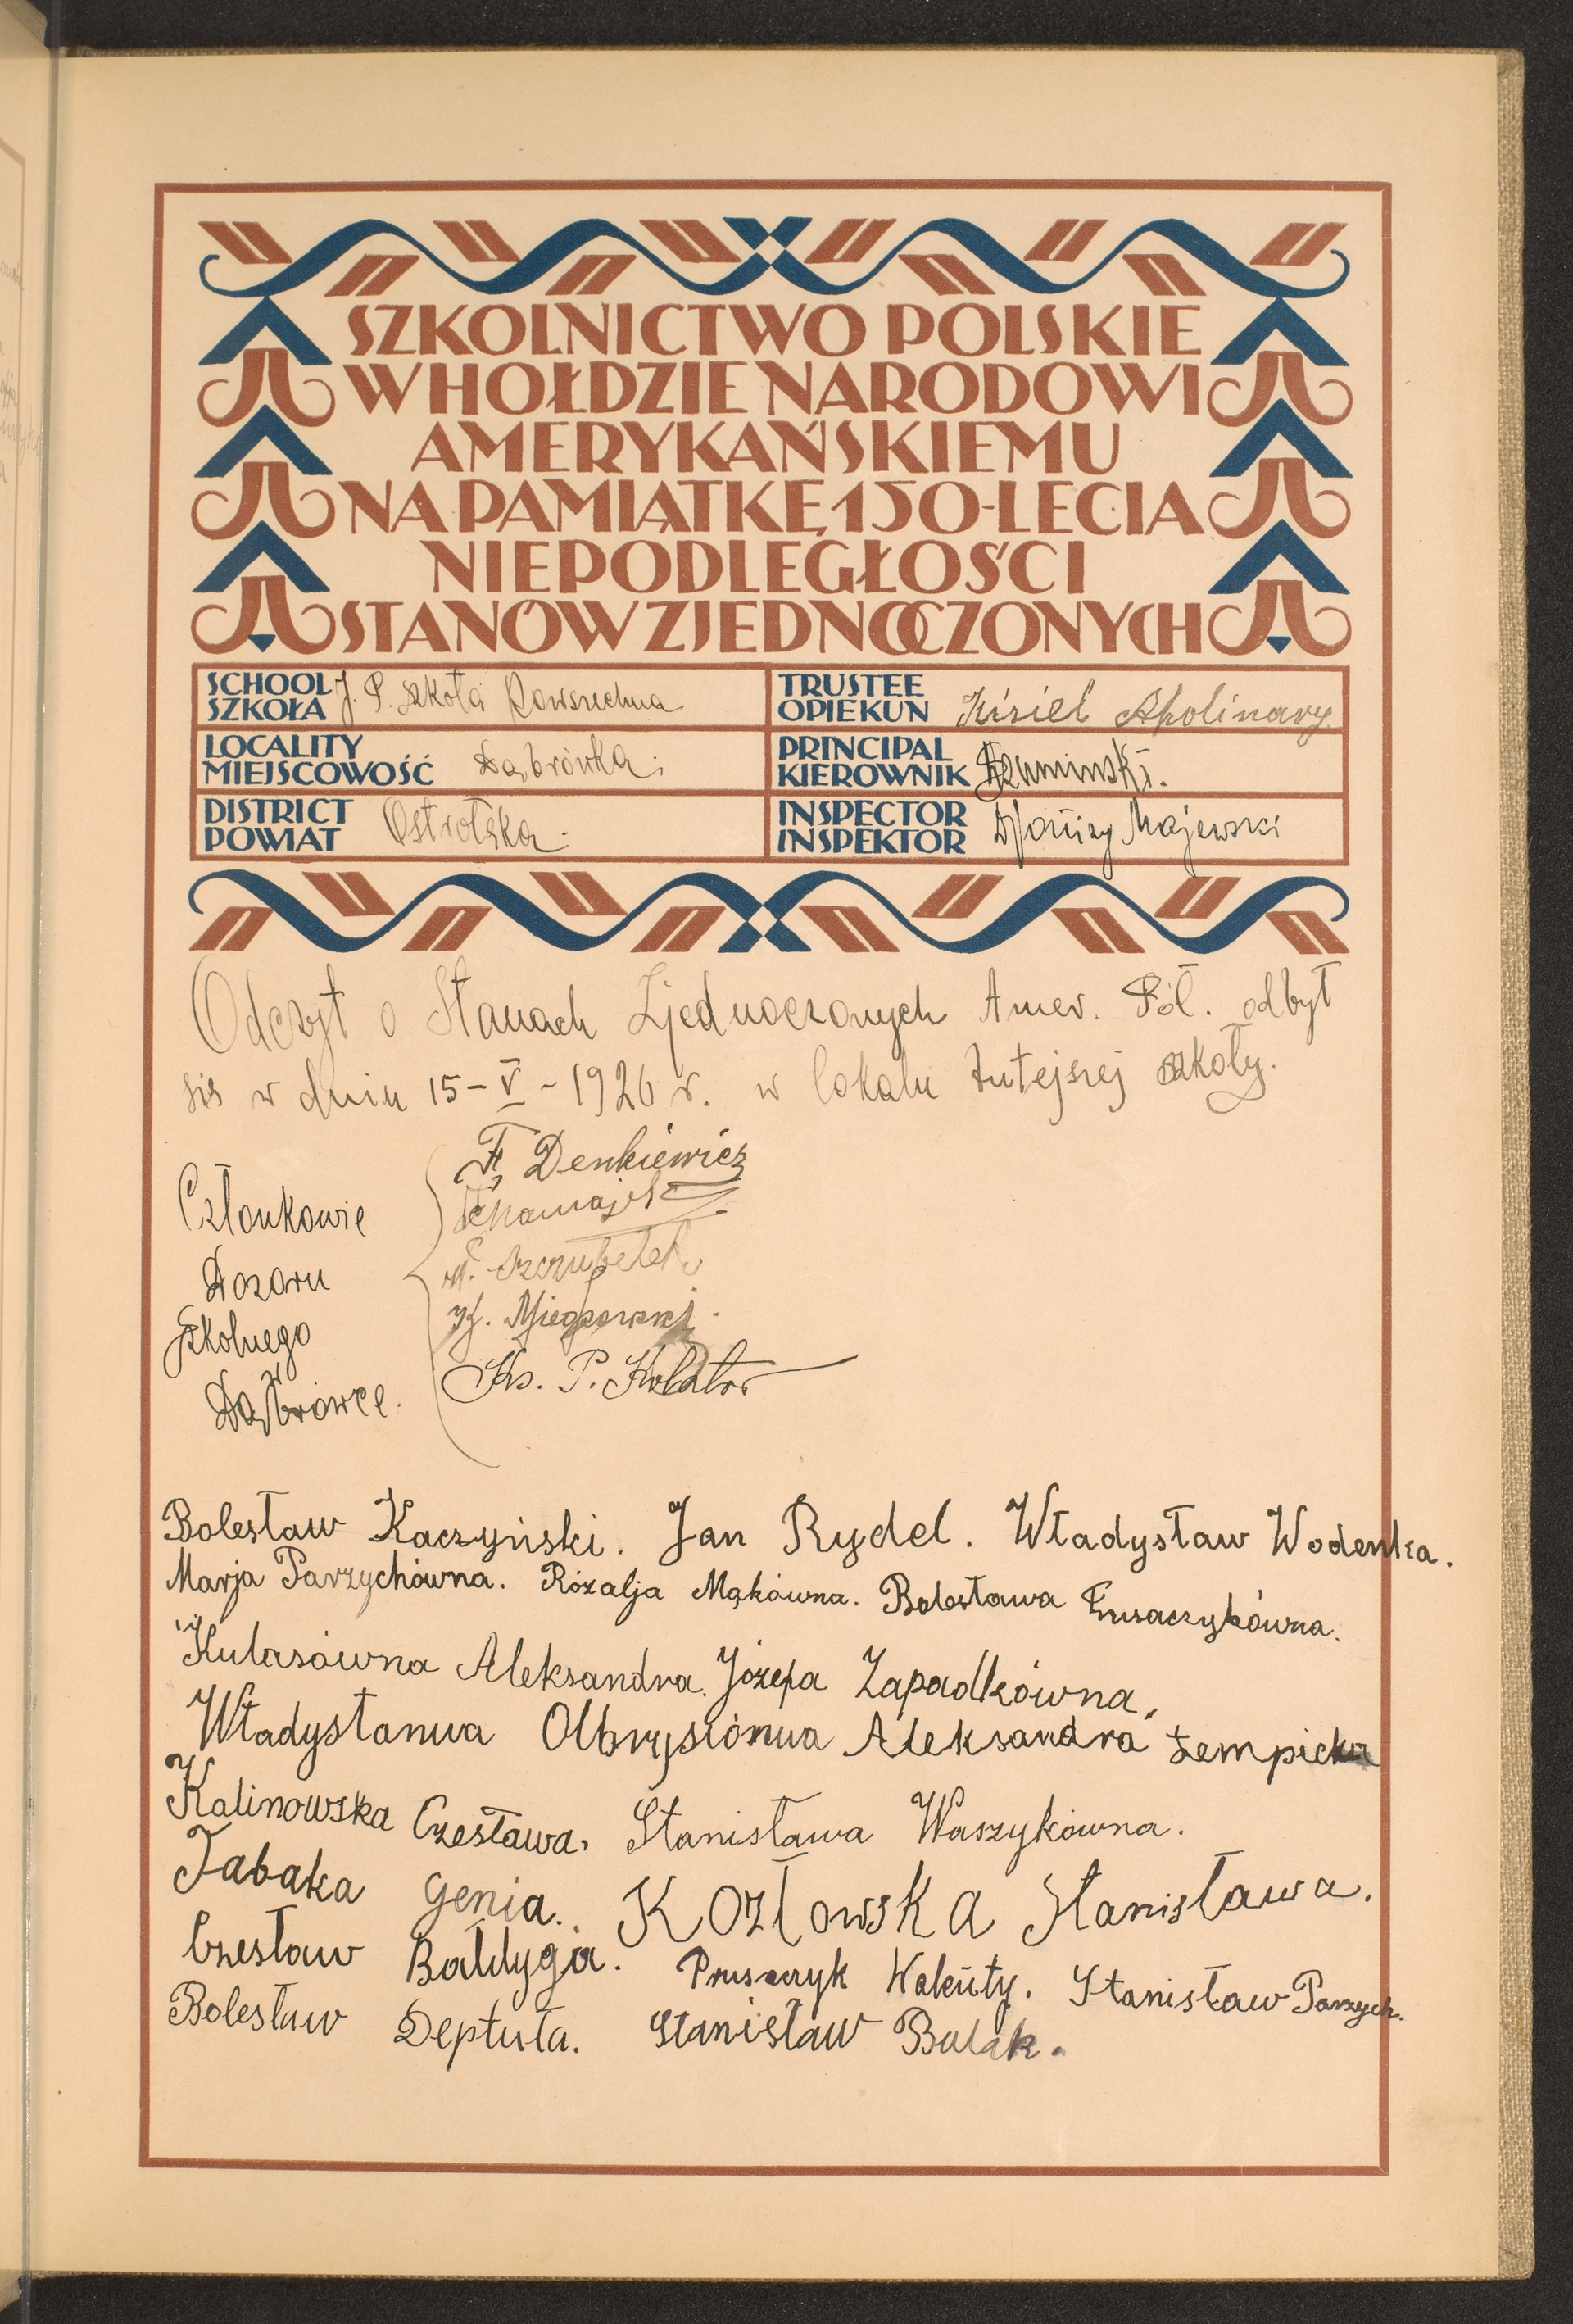 SZKOLNICTWO POLSKIE
W HOŁDZIE NARODOWI
AMERYKAŃSKIEMU
NA PAMIĄTKĘ 150-LECIA
NIEPODLEGŁOŚCI
STANÓW ZJEDNOCZONYCH
SCHOOL
SZKOŁA J. P. Szkoła Powszechna
TRUSTEE
OPIEKUN Kisiel Apolinary
LOCALITY
MIEJSCOWOŚĆ Dąbrówka
PRINCIPAL
KIEROWNIK
DISTRICT
POWIAT Ostrołęka
INSPECTOR
INSPEKTOR Majewski
Odczyt o Stanach Zjednoczonych Amer. Pół. odbył
się w dniu 15-V-1926 r. w lokalu tutejszej szkoły.
Członkowie
Dozoru
Szkolnego
w
Dąbrówce.
F. Denkiewicz
Ks. P.
Bolesław Kaczyński. Jan Rydel. Władysław Wodenka.
Marja Parzychówna. Rozalja Mąkówna. Bolesława
Kulasówna Aleksandra. Józefa Zapadkówna,
Władysława Olbrysiówna Aleksandra Łempicka
Kalinowska Czesława. Stanisława Waszykówna.
Tabaka Genia. Kozłowska Stanisława.
Czesław Bałdyga. Pruszczyk Walenty. Stanisław Parzych.
Bolesław Deptuła. Stanisław Bulak.